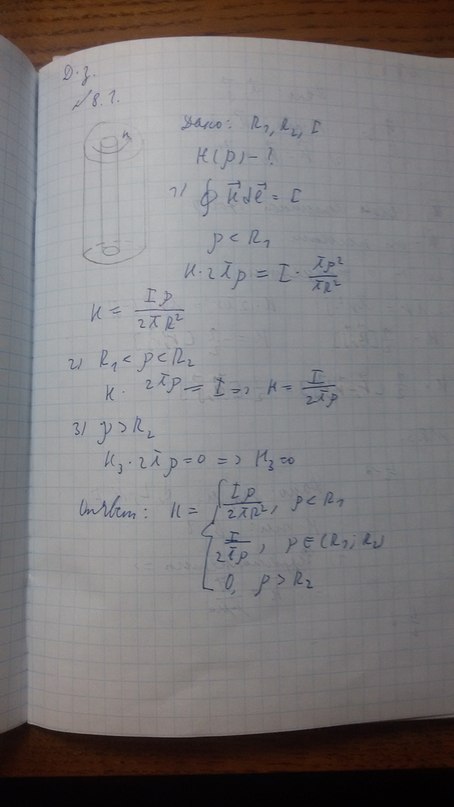 Д.з.
№8.1.
H
Дано: R₁, R₂, I
H(ρ) - ?
1) ∮ H⃗ dl⃗ = I
ρ < R₁
H · 2πρ = I · πρ²/πR²
H = Iρ/2πR²
2) R₁ < ρ < R₂
H · 2πρ = I => H = I/2πρ
3) ρ > R₂
H₃ · 2πρ = 0 => H₃ = 0
Ответ: H = { Iρ/2πR², ρ < R₁
I/2πρ, ρ ∈ (R₁; R₂)
0, ρ > R₂